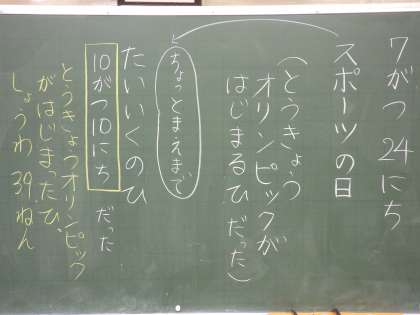 7がつ24にち
スポーツの日
(とうきょう
オリンピックが
はじまるひだった)
ちょっとまえまで
たいいくのひ
10がつ10にち だった
とうきょうオリンピック
がはじまったひ、
しょうわ39ねん